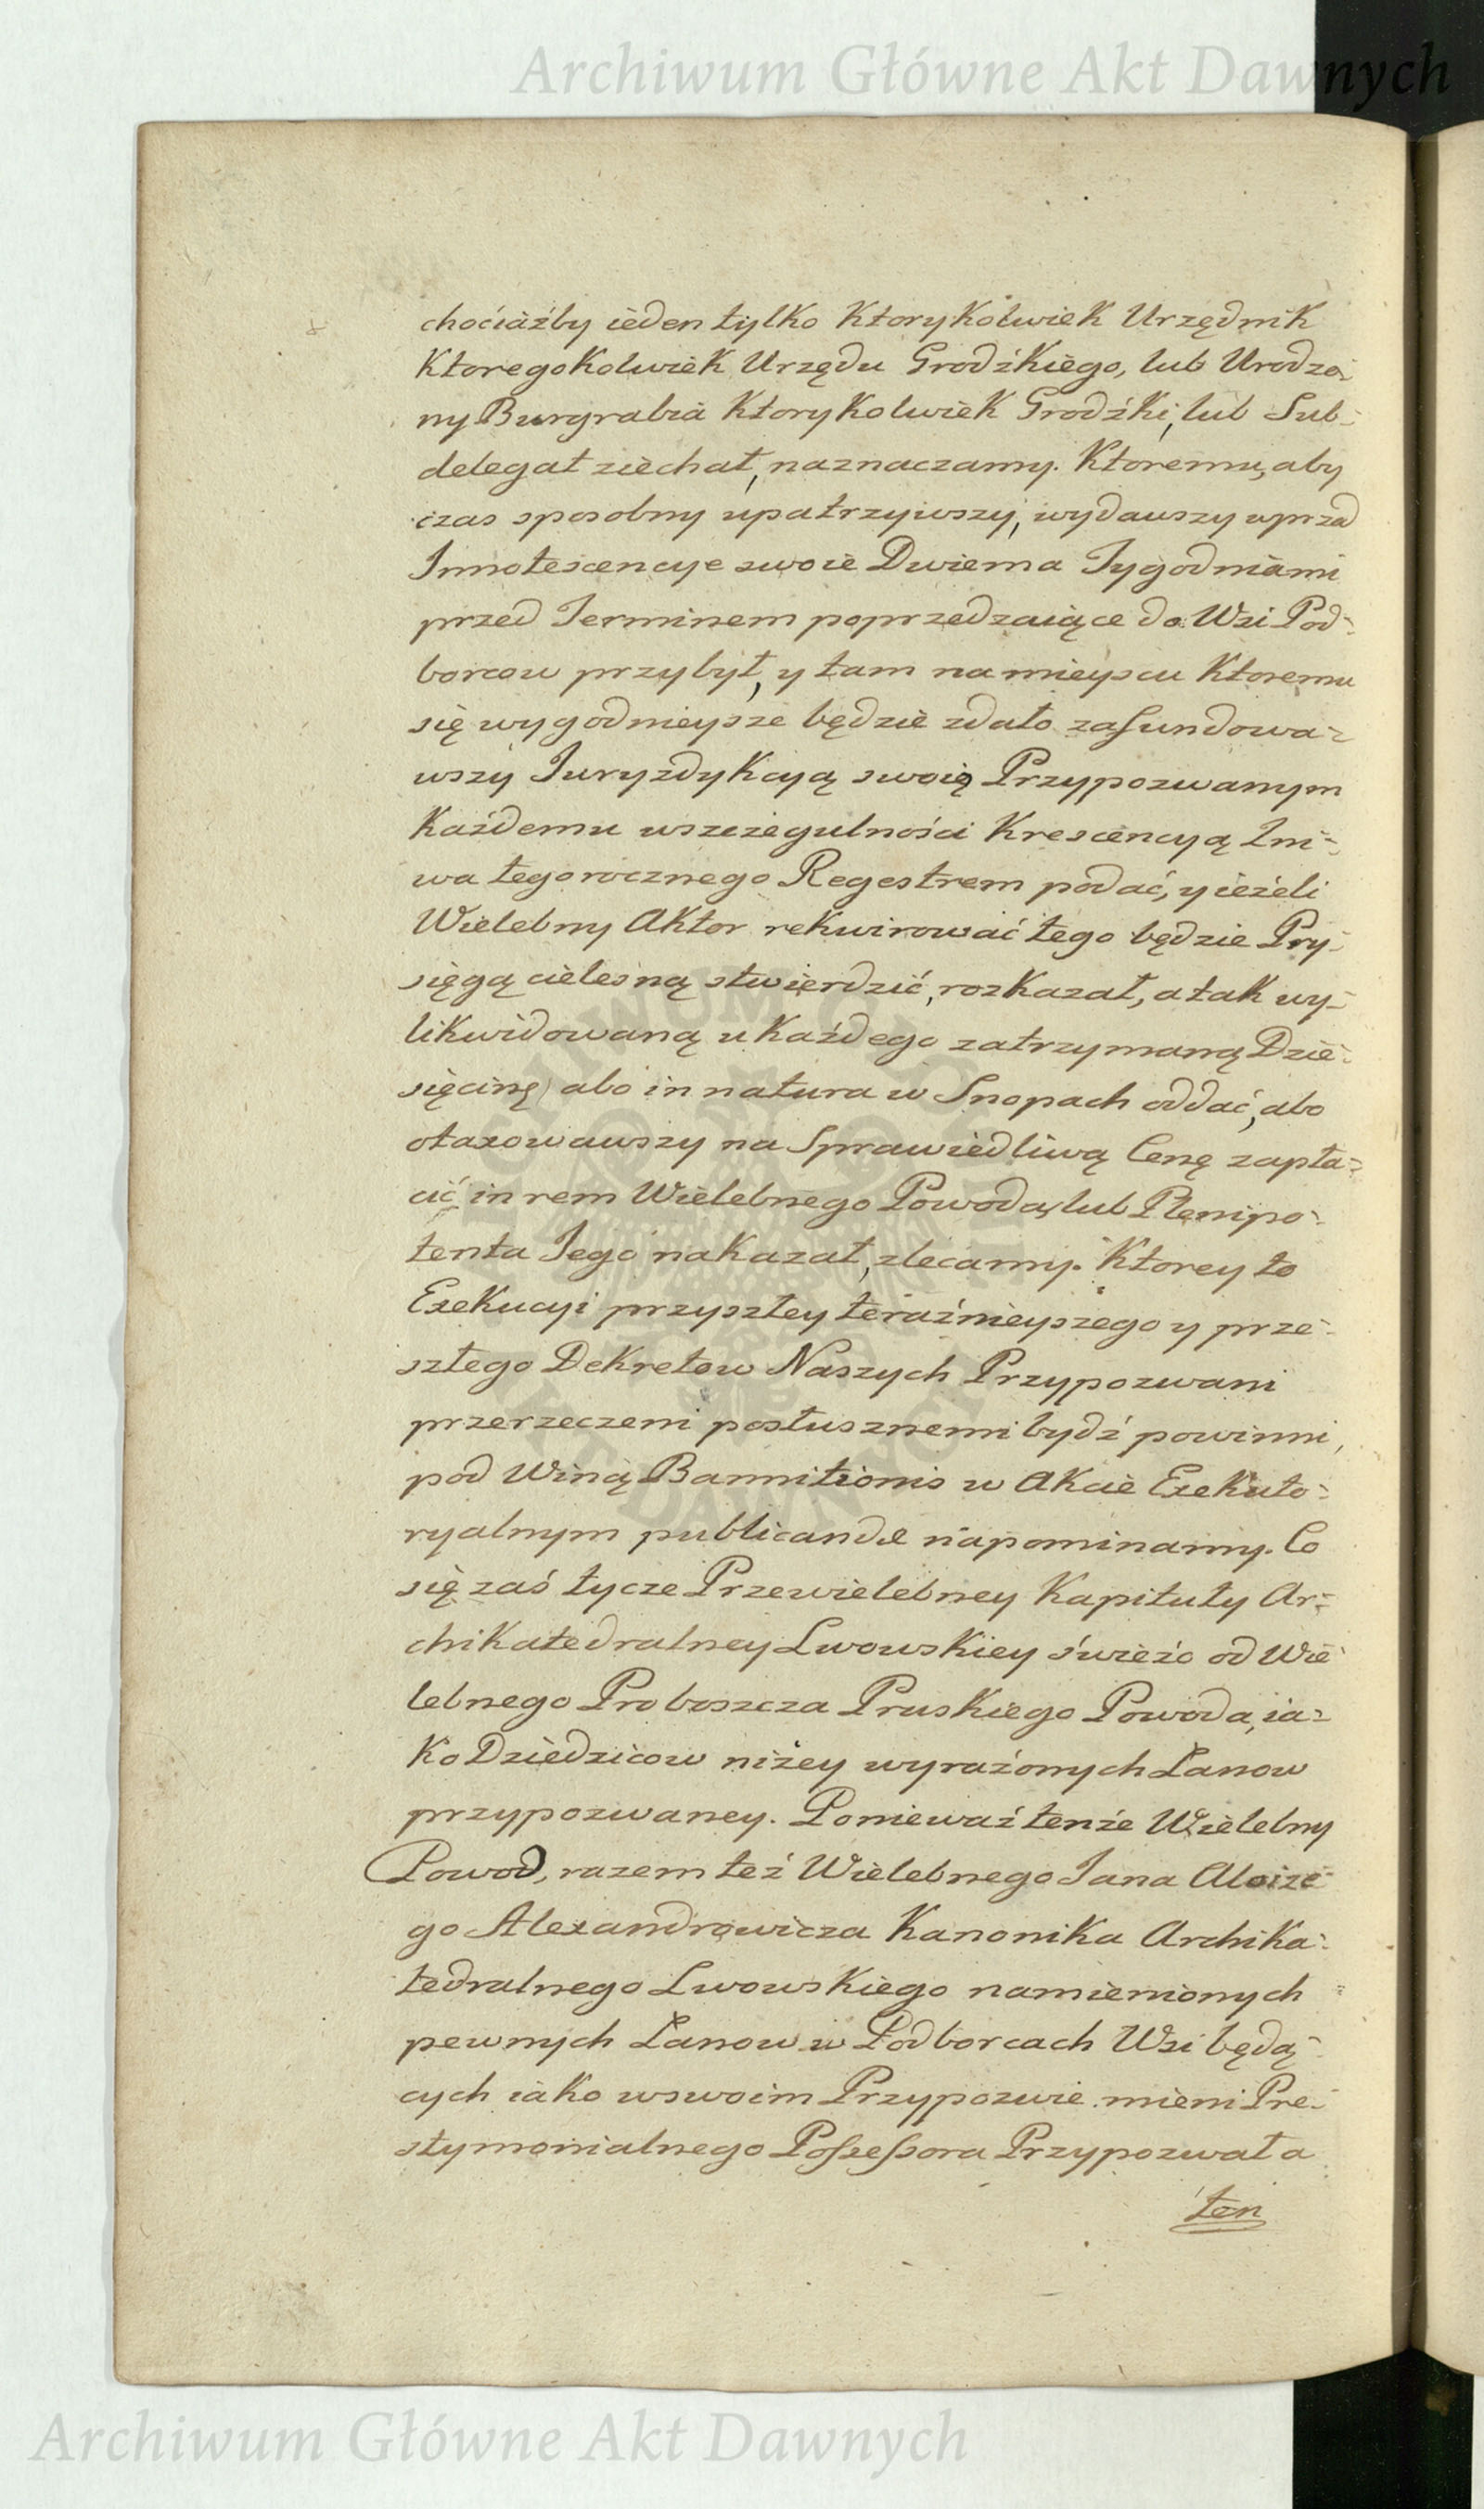 Archiwum Główne Akt Dawnych
chociażby ieden tylko Ktorykolwiek Urzędnik
Ktoregokolwiek Urzędu Grodźkiego, lub Urodzo-
ny Burgrabia Ktorykolwiek Grodźki, lub Sub-
delegat ziechał, naznaczamy. Ktoremu, aby
czas sposobny upatrzywszy, wydawszy wprzod
Innotescencye swoie Dwiema Tygodniami
przed Terminem poprzedzaiące do Wsi Pod-
borcow przybył, y tam na mieyscu Ktoremu
się wygodnieysze będzie zdało zafundowa-
wszy Juryzdykcyą swoię Przypozwanym
Każdemu wszczegulności Krescencyą Żni-
wa tegorocznego Regestrem podać, y ieżeli
Wielebny Aktor rekwirować tego będzie Pry-
sięgą cielesną stwierdzić, rozkazał, a tak wy-
likwidowaną u Każdego zatrzymaną Dzie-
sięcinę abo in natura w Snopach oddać, abo
otaxowawszy na Sprawiedliwą Cenę zapła-
cić in rem Wielebnego Powoda, lub Plenipo-
tenta Jego nakazał, zlecamy. Ktorey to
Exekucyi przyszłey teraźnieyszego y prze-
szłego Dekretow Naszych Przypozwani
przerzeczeni posłusznemi bydź powinni,
pod Winą Bannitionis w Akcie Exekuto-
ryalnym publicandæ napominamy. Co
się zaś tycze Przewielebney Kapituły Ar-
chikatedralney Lwowskiey świeżo od Wie
lebnego Proboszcza Pruskiego Powoda, ia-
ko Dziedzicow niżey wyrażonych Łanow
przypozwaney. Ponieważ tenże Wielebny
Powod, razem też Wielebnego Jana Aloize
go Alexandrowicza Kanonika Archika-
tedralnego Lwowskiego namienionych
pewnych Łanow w Podborcach Wsi będą
cych iako wswoim Przypozwie mieni Pre-
stymonialnego Possessora Przypozwał a
ten
Archiwum Główne Akt Dawnych